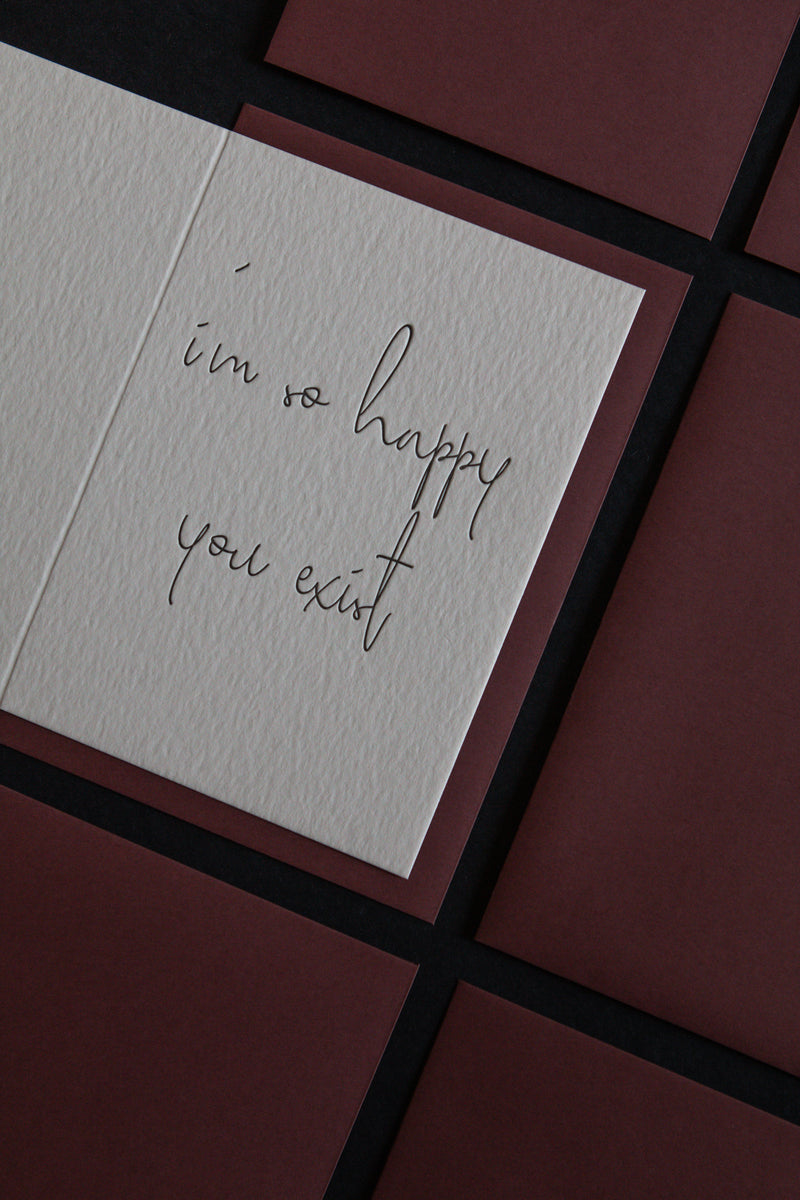 i'm so happy
you exist